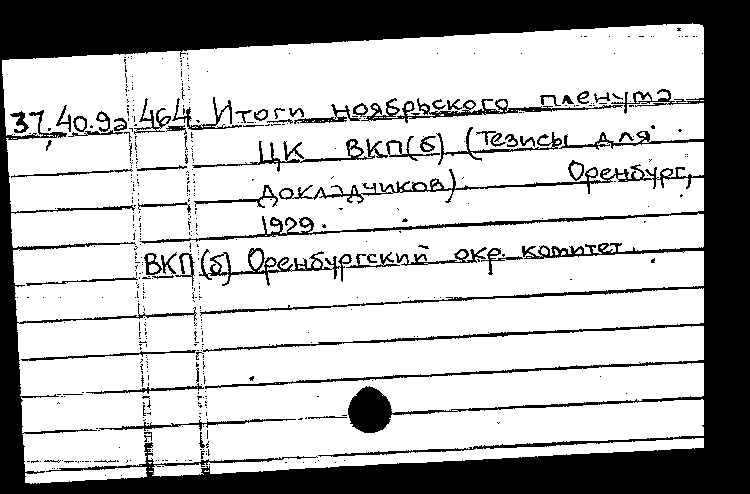 37.40.9а.464. Итоги ноябрьского пленума
ЦК ВКП(б) (тезисы для
докладчиков). Оренбург,
1929.
ВКП(б) Оренбургский окр. комитет.